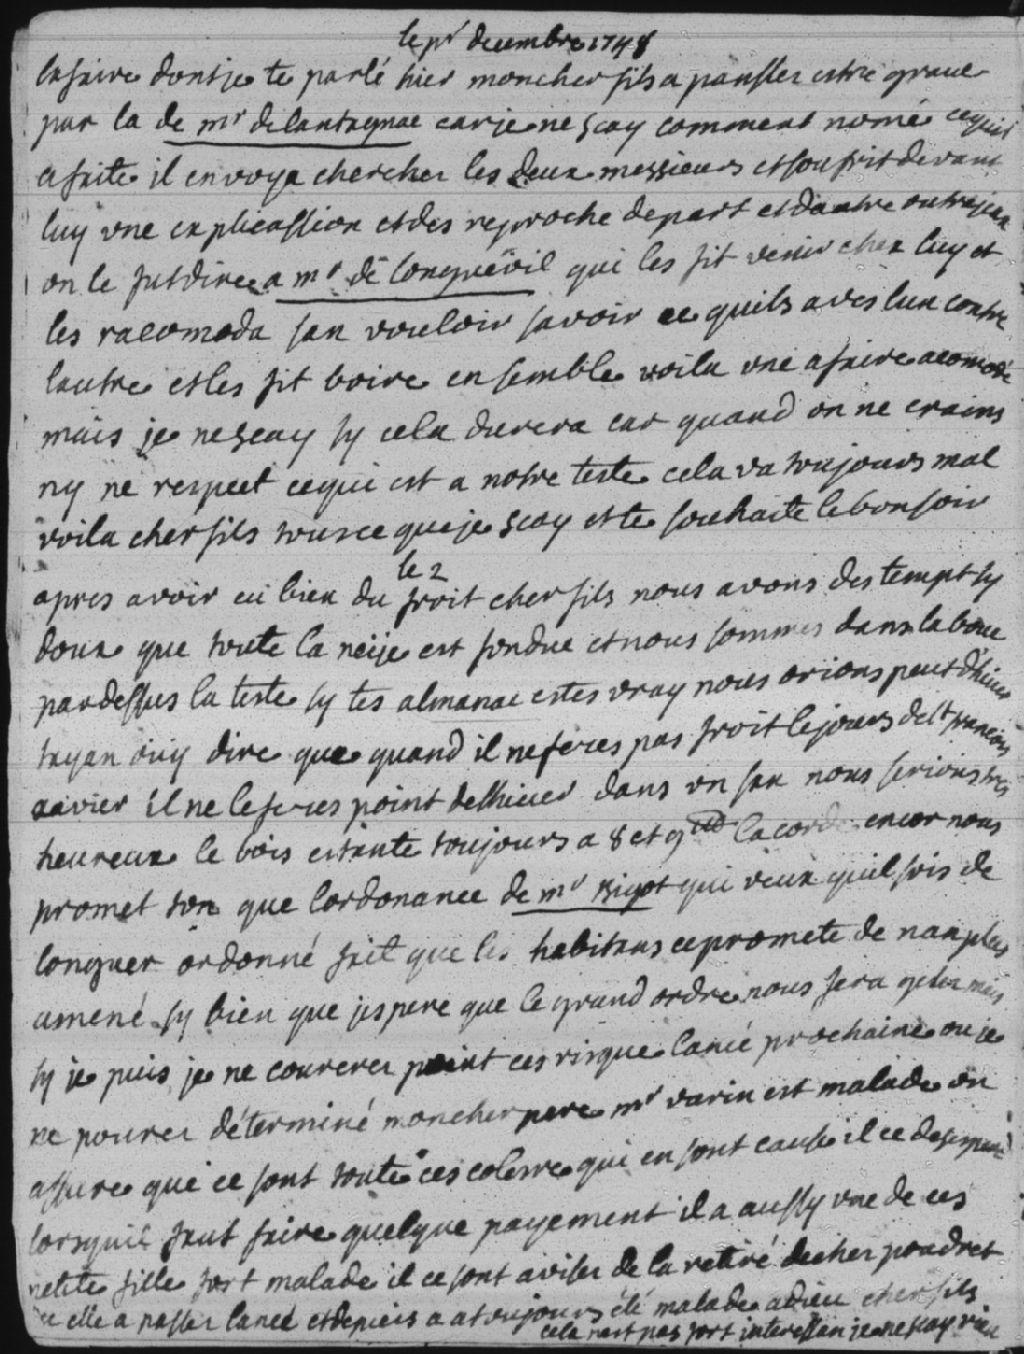 le pr decembre 1748
lafaire dont je te parlé hier mon cher fils a pansser estre grave
par la de mr de lantagnac car je ne scay comment nomé ce quil
a faite il envoya chercher les deux messieurs et soufrit devant
luy une explicassion et des reproche de part et dautre outrajeux
on le fut dire a mr de longuëvil qui les fit venir chez luy et
les racomoda san vouloir savoir ce quils aves lun contre
lautre et les fit boire ensemble voila une afaire acomodé
mais je ne scay sy cela durera car quand on ne crains
ny ne respect ce qui est a notre teste cela va toujours mal
voila cher fils tous ce que je scay et te souhaite le bonsoir
le 2
apres avoir eü bien du froit cher fils nous avons des tempt sy
doux que toute la neije est fondue et nous sommes dans la boue
par dessus la teste sy tes almanac estes vray nous orions peut dhiver
oüy dire que quand il ne feres pas froit le jours de st francois
xavier il ne le feres point de lhiver dans un san nous serions tres
heureux le bois estante toujours a 8 et 9 la corde encor nous
promet ton que lordonance de mr Bigot qui veux quil sois de
longuer ordonné fait que les habitans ce promete de nan plus
amené sy bien que jespere que le grand ordre nous sera mis
sy je puis je ne coureres point ces risque lanné prochaine ou je
ne poures déterminé mon cher pere mr varin est malade on
assure que ce sont toute ces colerre qui en sont cause il ce
lorsquil faut faire quelque payement il a aussy une de ces
petite fille fort malade il ce sont aviser de la retiré de cher poudret
ou elle a passer lanné et depuis a toujours été malade adieu cher fils
cela nest pas fort interessan je ne scay rien